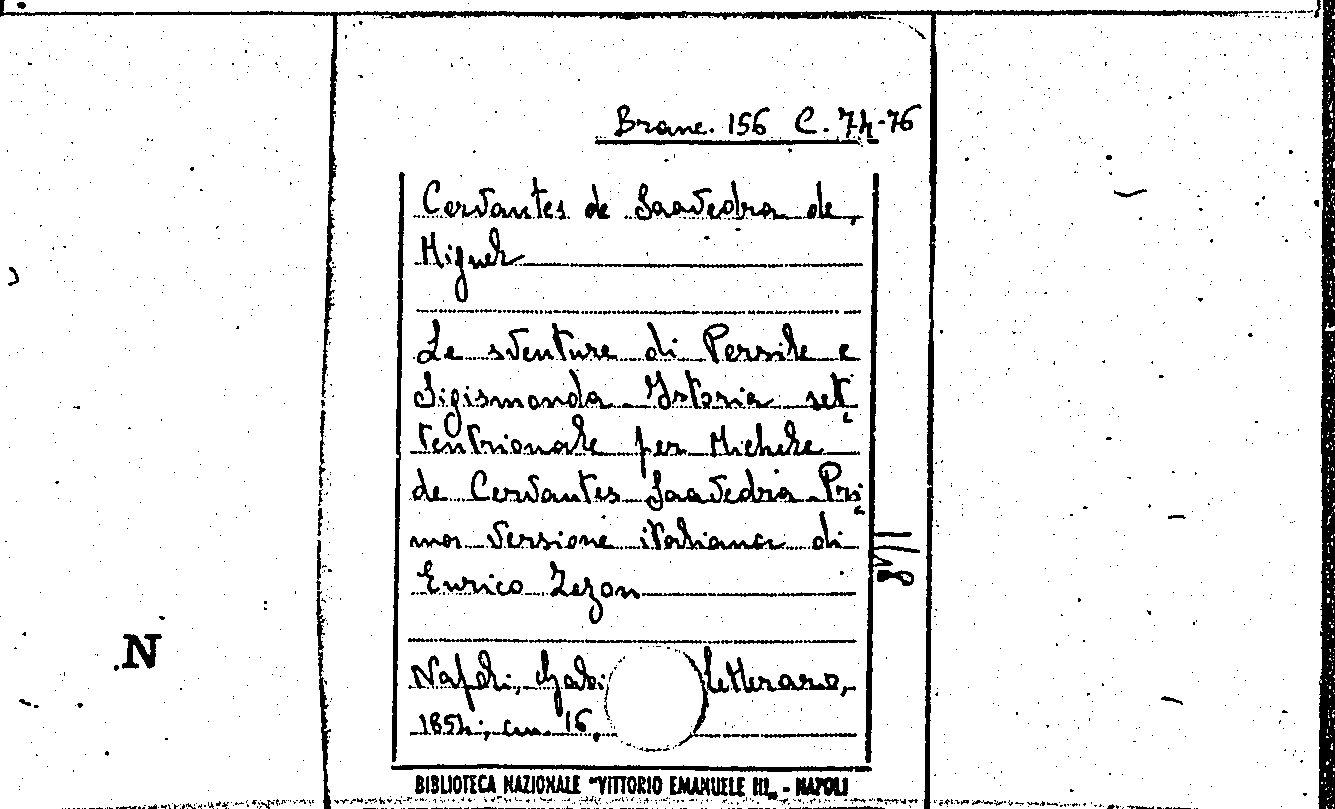 Branc. 156 C. 74-76
Cervantes de Saavedra de,
Miguel
Le sventure di Persile e
Sigismonda Istoria set
tentrionale per Michele
de Cervantes Saavedra Pri
ma versione italiana di
Enrico Zezon
Napoli, Gabi letterario,
1854; cm. 16.
BIBLIOTECA NAZIONALE "VITTORIO EMANUELE III„ - NAPOLI
N